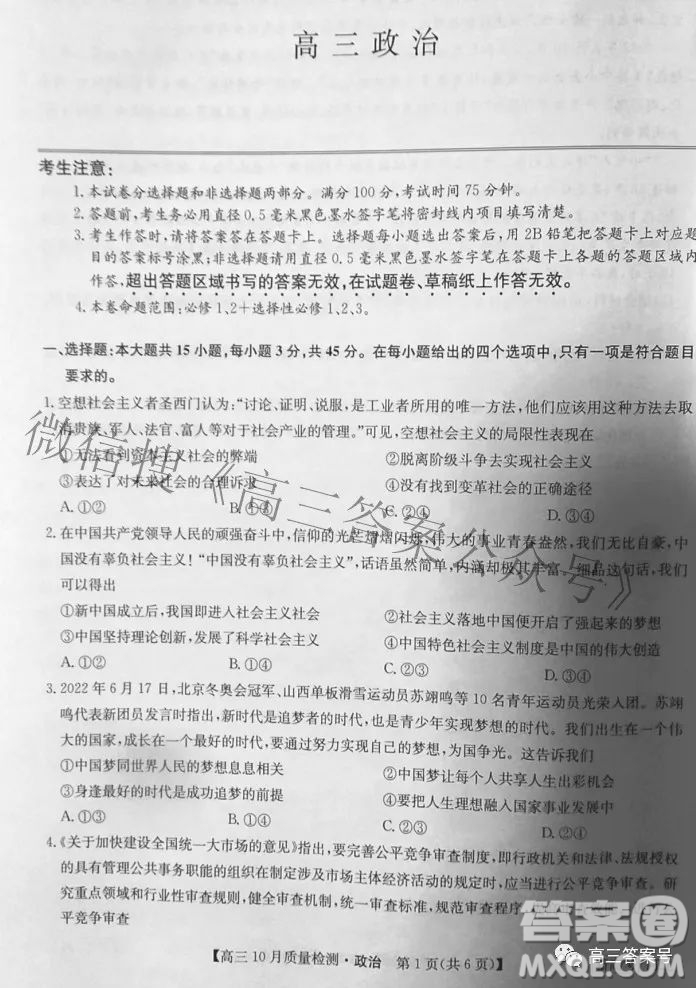 高三政治
考生注意:
1.本试卷分选择题和非选择题两部分。满分100分,考试时间75分钟。
2.答题前,考生务必用直径0.5毫米黑色墨水签字笔将密封线内项目填写清楚。
3.考生作答时,请将答案答在答题卡上。选择题每小题选出答案后,用2B铅笔把答题卡上对应题
目的答案标号涂黑;非选择题请用直径0.5毫米黑色墨水签字笔在答题卡上各题的答题区域内
作答,超出答题区域书写的答案无效,在试题卷、草稿纸上作答无效。
4.本卷命题范围:必修1、2+选择性必修1、2、3。
一、选择题:本大题共15小题,每小题3分,共45分。在每小题给出的四个选项中,只有一项是符合题目
要求的。
1.空想社会主义者圣西门认为:“讨论、证明、说服,是工业者所用的唯一方法,他们应该用这种方法去取
消贵族、军人、法官、富人等对于社会产业的管理。”可见,空想社会主义的局限性表现在
①无法看到资本主义的弊端 ②脱离阶级斗争去实现社会主义
③表达了对未来社会的合理诉求 ④没有找到变革社会的正确途径
A.①② B.①③ C.②④ D.③④
2.在中国共产党领导人民的顽强奋斗中,信仰的光芒熠熠闪烁,伟大的事业青春盎然,我们无比自豪,中
国没有辜负社会主义!“中国没有辜负社会主义”,话语虽然简单,内涵却极其丰富。细品这句话,我们
可以得出
①新中国成立后,我国即进入社会主义社会 ②社会主义落地中国便开启了强起来的梦想
③中国坚持理论创新,发展了科学社会主义 ④中国特色社会主义制度是中国的伟大创造
A.①② B.①④ C.②③ D.③④
3.2022年6月17日,北京冬奥会冠军、山西单板滑雪运动员苏翊鸣等10名青年运动员光荣入团。苏翊
鸣代表新团员发言时指出,新时代是追梦者的时代,也是青少年实现梦想的时代。我们出生在一个伟
大的国家,成长在一个最好的时代,要通过努力实现自己的梦想,为国争光。这告诉我们
①中国梦同世界人民的梦想息息相关 ②中国梦让每个人共享人生出彩机会
③身逢最好的时代是成功追梦的前提 ④要把人生理想融入国家事业发展中
A.①③ B.①④ C.②③ D.②④
4.《关于加快建设全国统一大市场的意见》指出,要完善公平竞争审查制度,即行政机关和法律、法规授权
的具有管理公共事务职能的组织在制定涉及市场主体经济活动的规定时,应当进行公平竞争审查。研
究重点领域和行业性审查规则,健全审查机制,统一审查标准,规范审查程序
平竞争审查
【高三10月质量检测·政治 第1页(共6页)】
微信搜《高三答案公众号》
答案卷
高三答案号
MXQE.COM